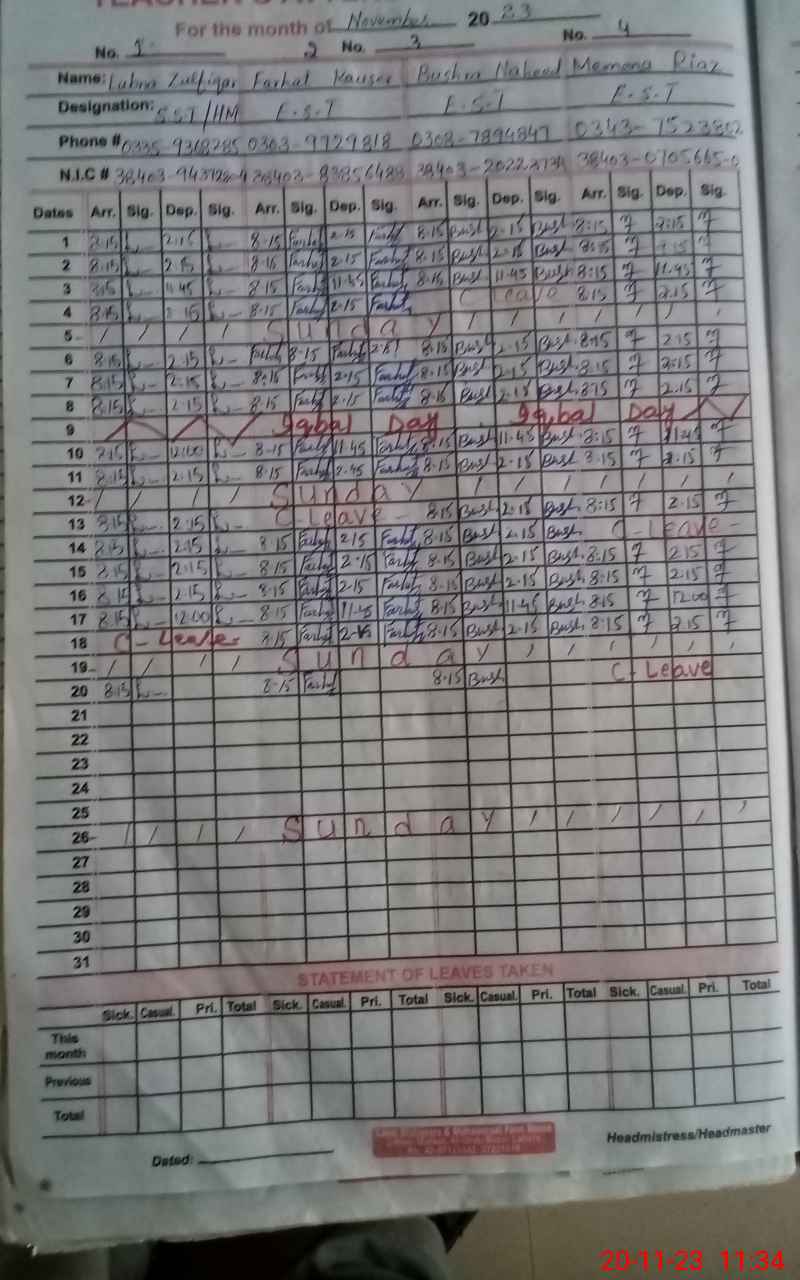 For the month of November 2023
No. 1 2 No. 3 No. 4
Name: Lubna Zulfiqar Farhat Kauser Bushra Naheed Memona Riaz
Designation: S.S.T/HM E.S.T E.S.T E.S.T
Phone # 0335-9368285 0303-9729818 0308-7894847 0343-7523802
N.I.C #
Dates Arr. Sig. Dep. Sig. Arr. Sig. Dep. Sig. Arr. Sig. Dep. Sig. Arr. Sig. Dep. Sig.
1 8.15 2.15 8.15 Farhat 2.15 Farhat 8.15 Bush 2.15 Bush 8:15 2:15
2 8.15 2.15 8.15 Farhat 2.15 Farhat 8.15 Bush 2.15 Bush 8:15 2.15
3 8.15 11.45 8.15 Farhat 11.45 Farhat 8.15 Bush 11.45 Bush 8:15 11.45
4 8.15 2.15 8.15 Farhat 2.15 Farhat C leave 8.15 2.15
5 / / / / Sunday / / / / / / /
6 8.15 2.15 Farhat 8.15 Farhat 2.15 8.15 Bush 2.15 Bush 8:15 2.15
7 8.15 2.15 8.15 Farhat 2.15 Farhat 8.15 Bush 2.15 Bush 8.15 2:15
8 8.15 2.15 8.15 Farhat 2.15 Farhat 8.15 Bush 2.15 Bush 8.15 2.15
9 Iqbal Day Iqbal Day
10 8.15 12.00 8.15 Farhat 11.45 Farhat 8.15 Bush 11.45 Bush 8:15 11.45
11 8.15 2.15 8.15 Farhat 2.45 Farhat 8.15 Bush 2.15 Bush 8.15 2.15
12 / / / / Sunday / / / / / / /
13 8.15 2.15 C-Leave - 8.15 Bush 2.15 Bush 8:15 2.15
14 8.15 2.15 8.15 Farhat 2.15 Farhat 8.15 Bush 2.15 Bush C-Leave -
15 8.15 2.15 8.15 Farhat 2.15 Farhat 8.15 Bush 2.15 Bush 8:15 2.15
16 8.15 2.15 8.15 Farhat 2.15 Farhat 8.15 Bush 2.15 Bush 8:15 2.15
17 8.15 12.00 8.15 Farhat 11.45 Farhat 8.15 Bush 11.45 Bush 8.15 12.00
18 C-Leave 8.15 Farhat 2.15 Farhat 8.15 Bush 2.15 Bush 8:15 2.15
19 / / / / Sunday / / / / / / /
20 8.15 8.15 Farhat 8.15 Bush C-Leave
21
22
23
24
25
26 / / / / Sunday / / / / / / /
27
28
29
30
31
STATEMENT OF LEAVES TAKEN
Sick. Casual. Pri. Total Sick. Casual. Pri. Total Sick. Casual. Pri. Total Sick. Casual. Pri. Total
This month
Previous
Total
Dated: Headmistress/Headmaster
20-11-23 11:34